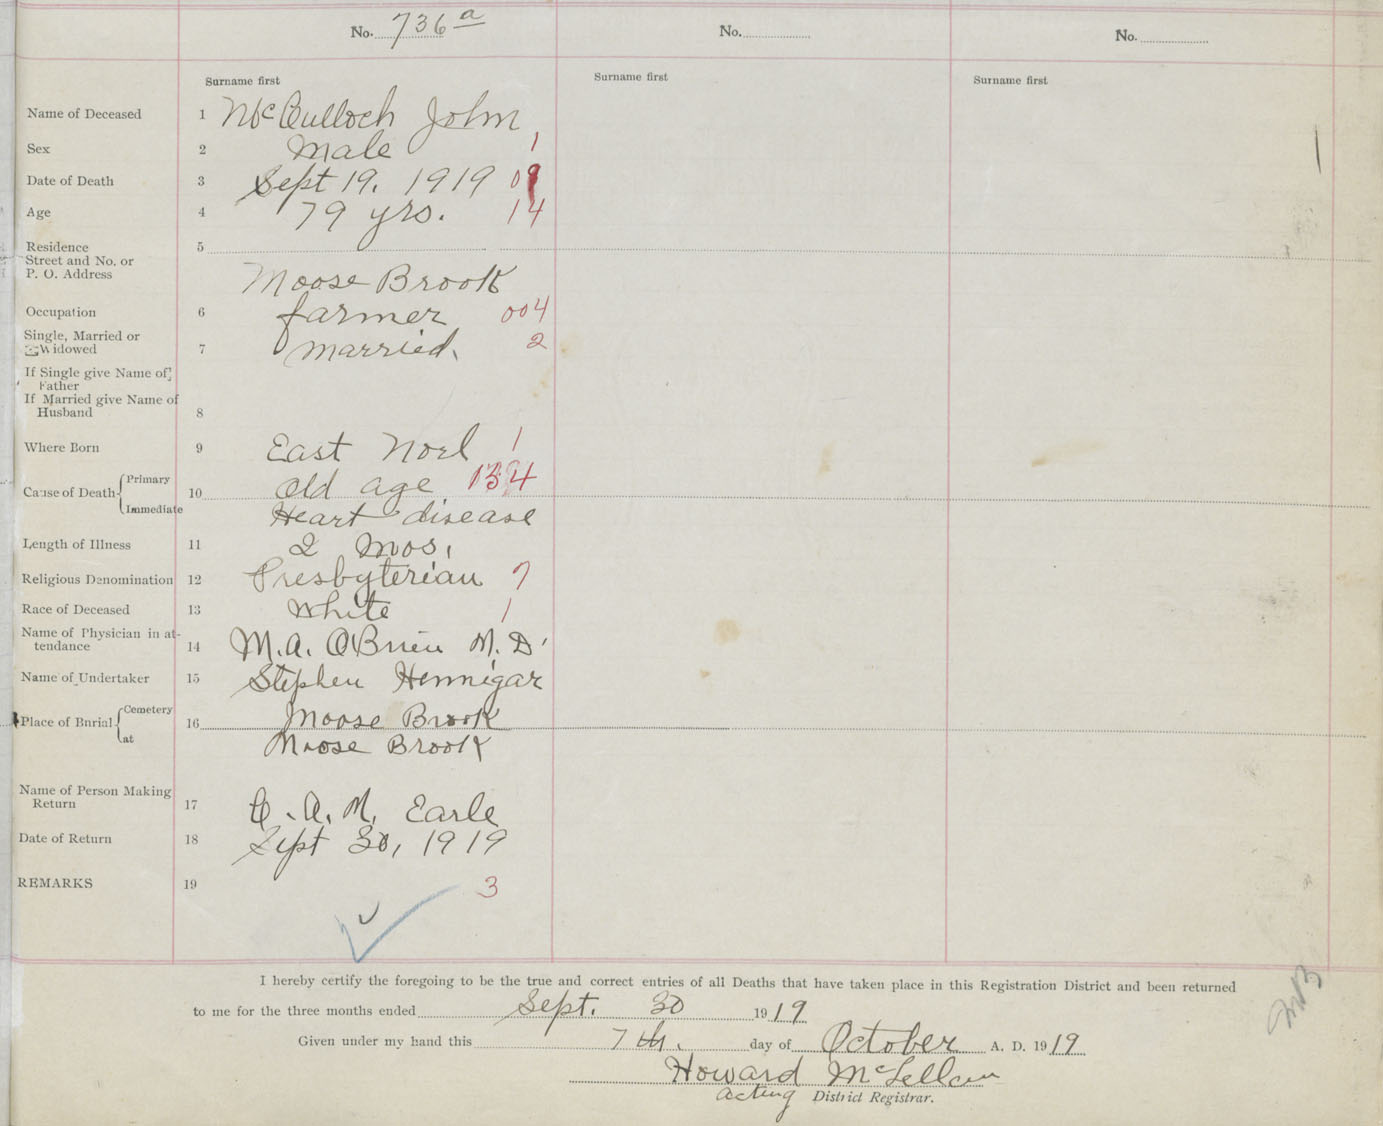 No. 736 a No. No.
Surname first Surname first Surname first
Name of Deceased 1 McCulloch John
Sex 2 Male 1
Date of Death 3 Sept 19. 1919 09
Age 4 79 yrs. 14
Residence 5
Street and No. or
P. O. Address Moose Brook
Occupation 6 farmer 004
Single, Married or
Widowed 7 married. 2
If Single give Name of
Father
If Married give Name of
Husband 8
Where Born 9 East Noel 1
Cause of Death Primary 10 Old age 134
Immediate Heart disease
Length of Illness 11 2 mos.
Religious Denomination 12 Presbyterian 7
Race of Deceased 13 White 1
Name of Physician in at-
tendance 14 M.A. O'Brien M.D.
Name of Undertaker 15 Stephen Hennigar
Place of Burial Cemetery 16 Moose Brook
at Moose Brook
Name of Person Making
Return 17 C. A. M. Earle
Date of Return 18 Sept 30, 1919
REMARKS 19 3
I hereby certify the foregoing to be the true and correct entries of all Deaths that have taken place in this Registration District and been returned
to me for the three months ended Sept. 30 1919
Given under my hand this 7th. day of October A. D. 1919
Howard McLellan
acting District Registrar.